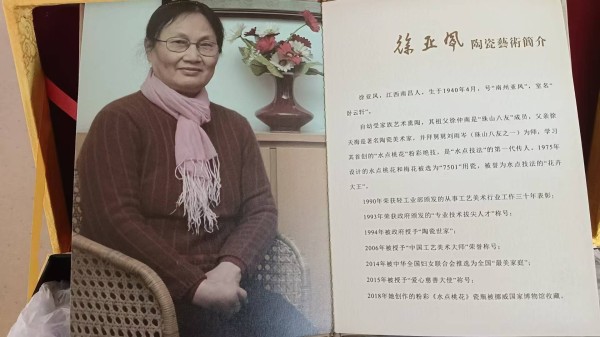 徐亚凤 陶瓷藝術簡介
徐亚凤，江西南昌人，生于1940年4月，号“南州亚凤”，室名“
舒云轩”。
自幼受家族艺术熏陶，其祖父徐仲南是“珠山八友”成员，父亲徐
天梅是著名陶瓷美术家，并拜舅舅刘雨岑（珠山八友之一）为师，学习
其首创的“水点桃花”粉彩绝技，是“水点技法”的第一代传人。1975年
设计的水点桃花和梅花被选为“7501”国瓷，被誉为水点技法的“花卉
大王”。
1990年荣获轻工业部颁发的从事工艺美术行业工作三十年表彰；
1993年荣获政府颁发的“专业技术拔尖人才”称号；
1994年被政府授予“陶瓷世家”；
2006年被授予“中国工艺美术大师”荣誉称号；
2014年被中华全国妇女联合会推选为全国“最美家庭”；
2015年被授予“爱心慈善大使”称号；
2018年她创作的粉彩《水点桃花》瓷瓶被挪威国家博物馆收藏。